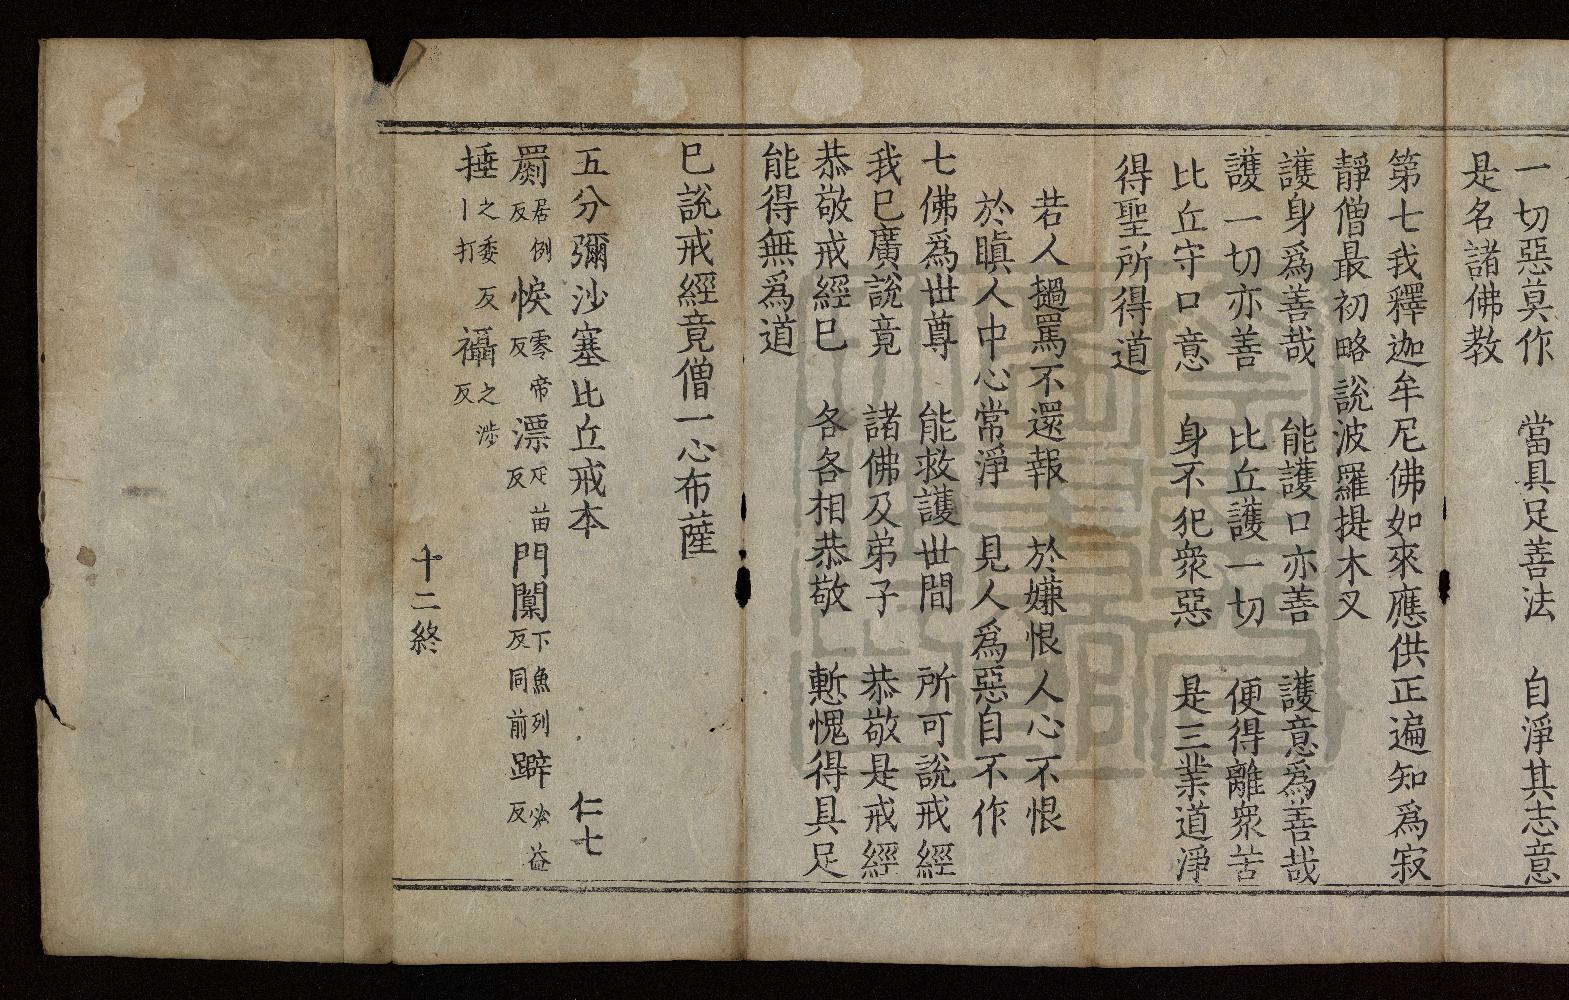 一切惡莫作　當具足善法　自淨其志意
是名諸佛教
第七我釋迦牟尼佛如來應供正遍知爲寂
靜僧最初略說波羅提木叉
護身爲善哉　能護口亦善　護意爲善哉
護一切亦善　比丘護一切　便得離衆苦
比丘守口意　身不犯衆惡　是三業道淨
得聖所得道
若人撾罵不還報　於嫌恨人心不恨
於瞋人中心常淨　見人爲惡自不作
七佛爲世尊　能救護世間　所可說戒經
我已廣說竟　諸佛及弟子　恭敬是戒經
恭敬戒經已　各各相恭敬　慙愧得具足
能得無爲道
已說戒經竟僧一心布薩
五分彌沙塞比丘戒本　仁七
罽居例反　悷零帝反　漂疋苗反　門闑下魚列反同前　躃必益反
捶之委反｜打　襵之涉反
十二終